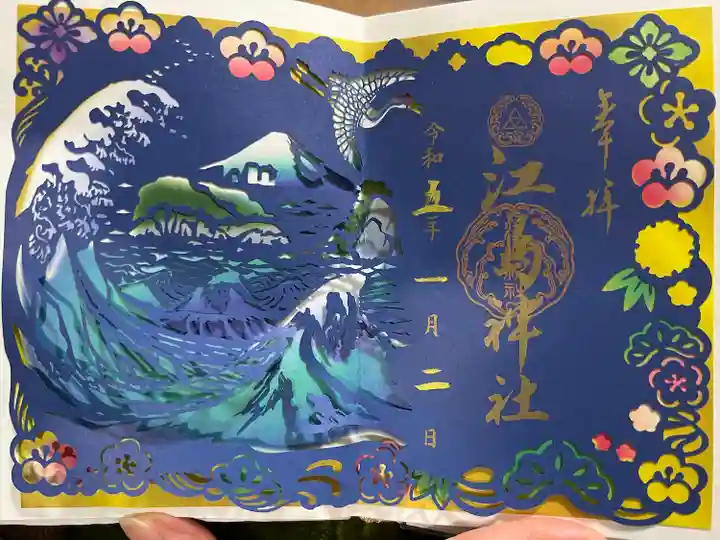 奉拝
江島神社
令和五年一月二日